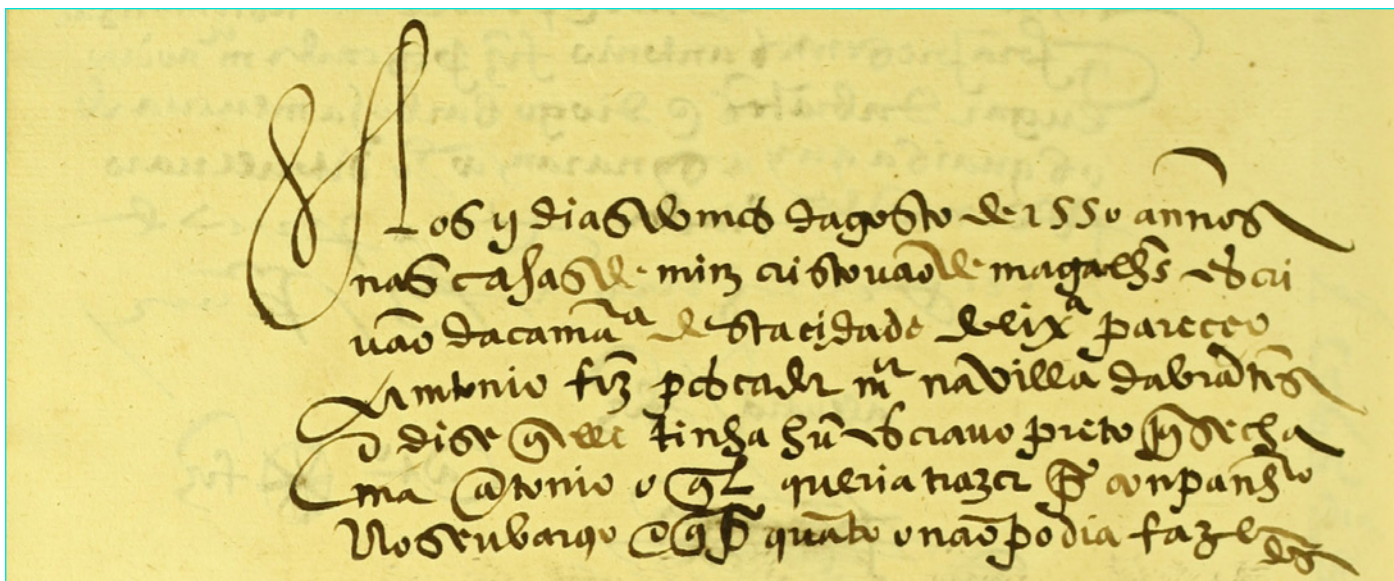 Aos ij dias do mes dagosto de 1550 annos
nas casas de mim cristovão de magalhes escri
vão da camara desta cidade de lixa pareceo
Antonio frz pescador mor na villa dabrãtes
e dise q elle tinha hũ escravo preto q se cha
ma ãtonio o ql queria trazer por conpanhro
No seu barqo e q por quãto o não podia fazer